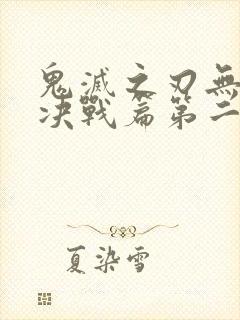 鬼滅之刃無
决戰篇第二
夏染雪